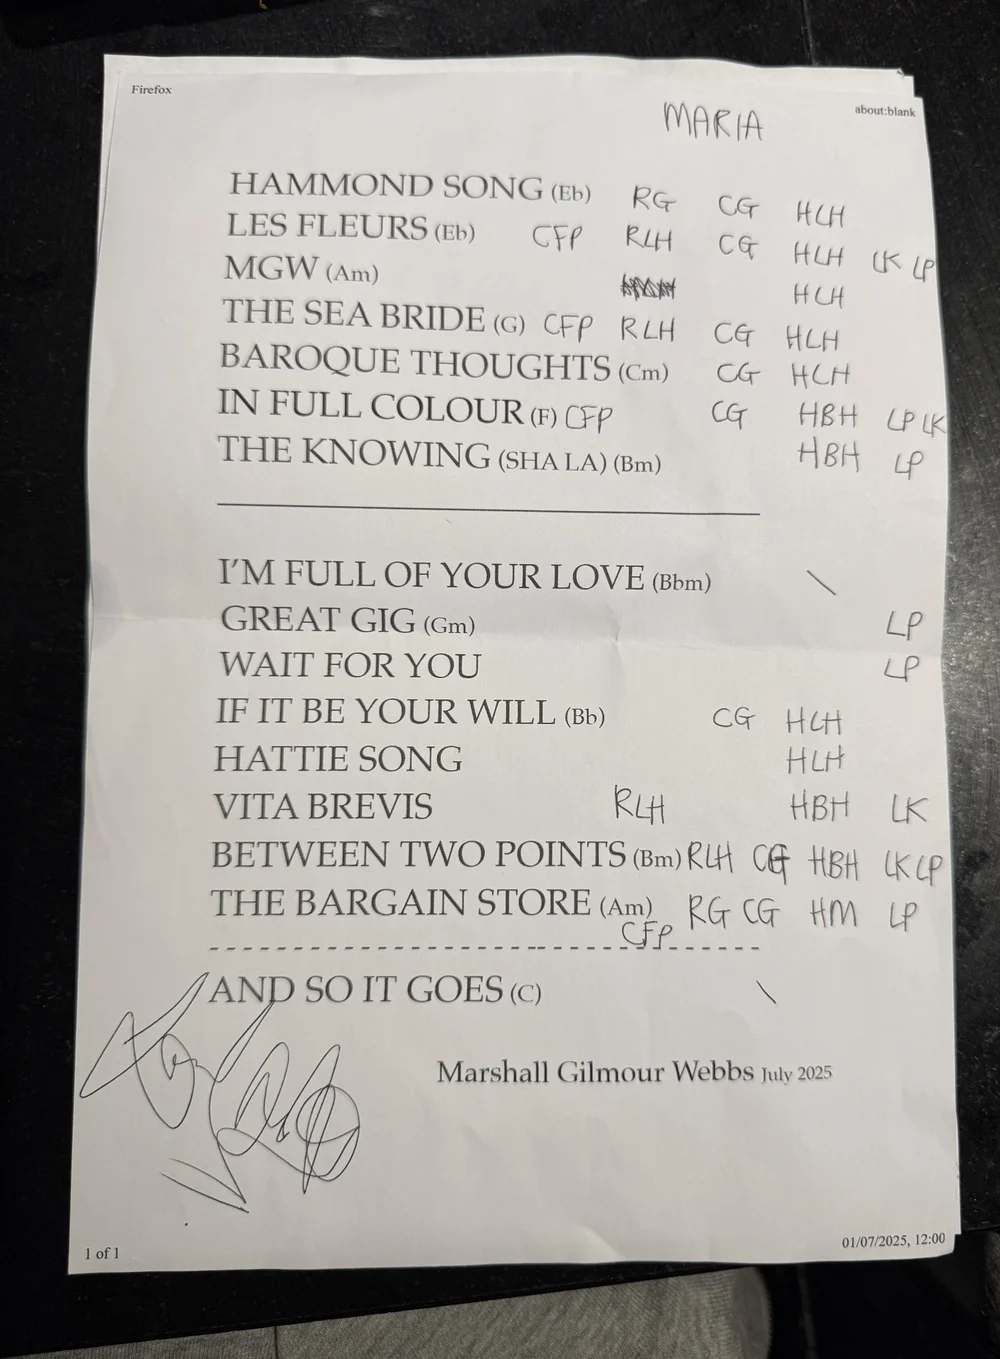 Firefox
about:blank
MARIA
HAMMOND SONG (Eb) RG CG HLH
LES FLEURS (Eb) CFP RLH CG HLH LK LP
MGW (Am) HLH
THE SEA BRIDE (G) CFP RLH CG HLH
BAROQUE THOUGHTS (Cm) CG HLH
IN FULL COLOUR (F) CFP CG HBH LP LK
THE KNOWING (SHA LA) (Bm) HBH LP
I'M FULL OF YOUR LOVE (Bbm) \
GREAT GIG (Gm) LP
WAIT FOR YOU LP
IF IT BE YOUR WILL (Bb) CG HLH
HATTIE SONG HLH
VITA BREVIS RLH HBH LK
BETWEEN TWO POINTS (Bm) RLH CG HBH LK LP
THE BARGAIN STORE (Am) RG CG HM LP
CFP
AND SO IT GOES (C) \
Marshall Gilmour Webbs July 2025
1 of 1
01/07/2025, 12:00